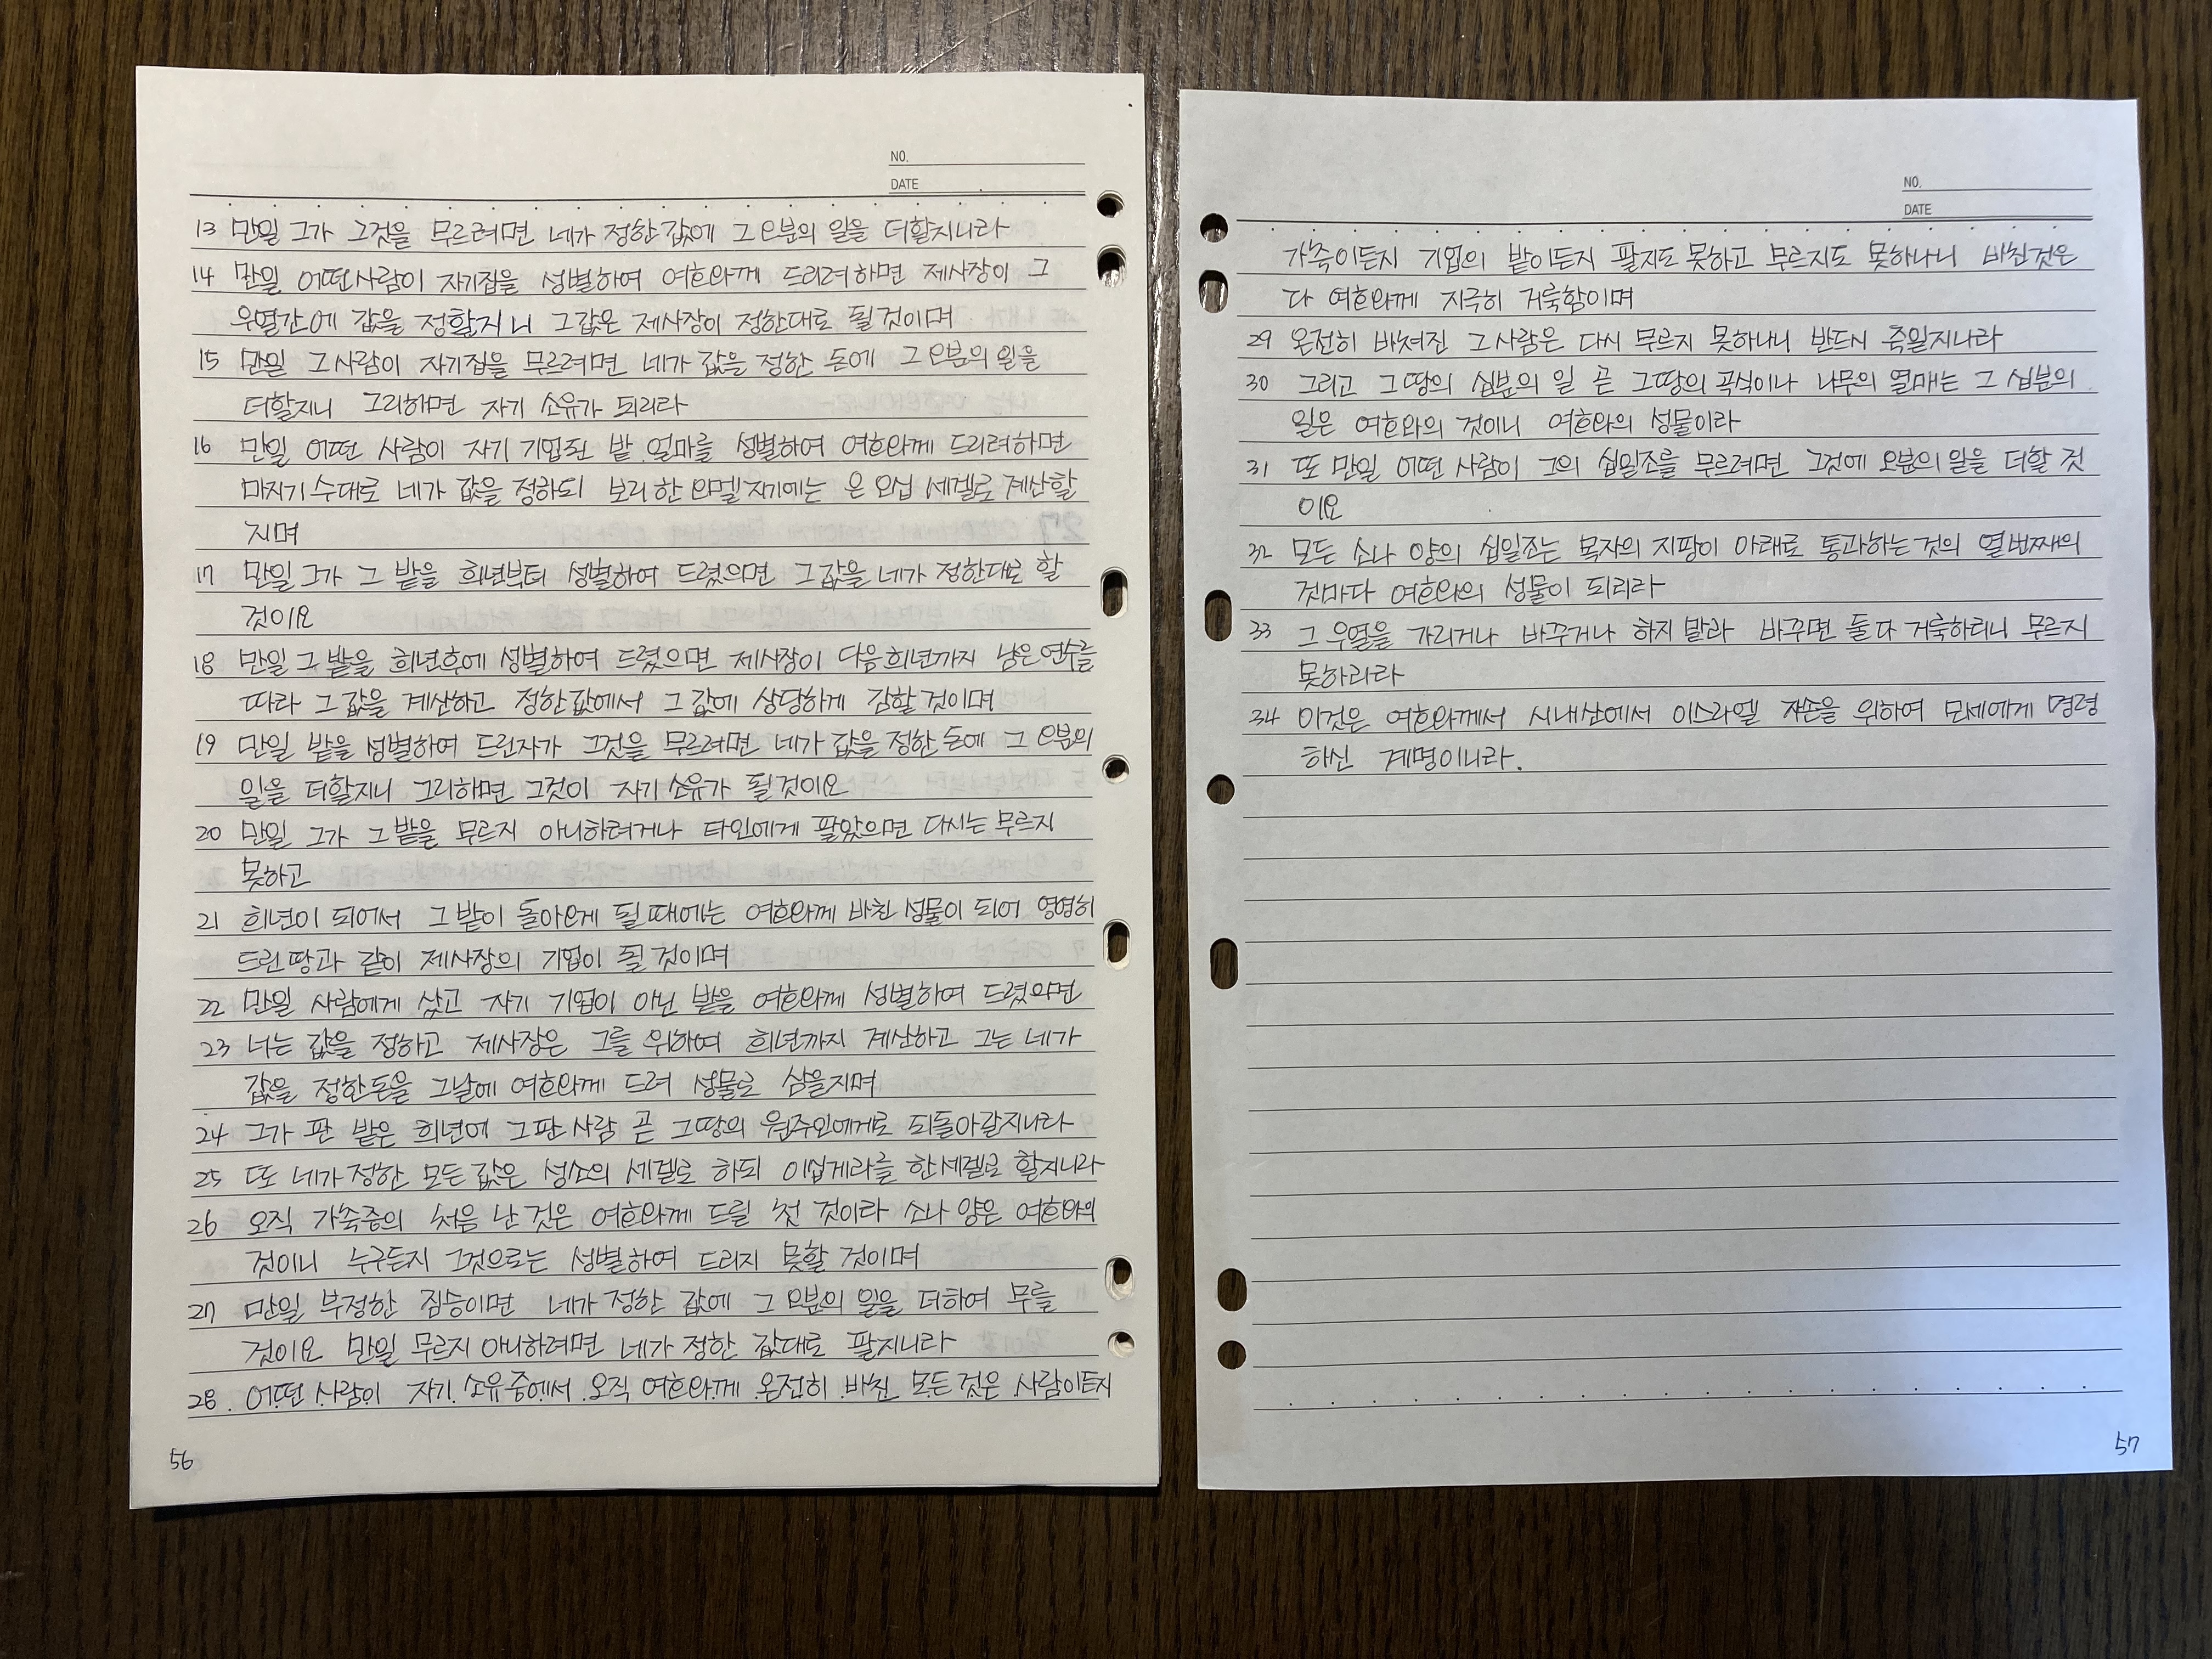 NO.
DATE
13 만일 그가 그것을 무르려면 네가 정한 값에 그 오분의 일을 더할지니라
14 만일 어떤사람이 자기집을 성별하여 여호와께 드리려하면 제사장이 그
우열간에 값을 정할지니 그값은 제사장이 정한대로 될것이며
15 만일 그사람이 자기집을 무르려면 네가 값을 정한 돈에 그 오분의 일을
더할지니 그리하면 자기 소유가 되리라
16 만일 어떤 사람이 자기 기업된 밭 얼마를 성별하여 여호와께 드리려하면
마지기수대로 네가 값을 정하되 보리한 호멜지기에는 은 오십 세겔로 계산할
지며
17 만일 그가 그 밭을 희년부터 성별하여 드렸으면 그값을 네가 정한대로 할
것이요
18 만일 그 밭을 희년후에 성별하여 드렸으면 제사장이 다음희년까지 남은연수를
따라 그값을 계산하고 정한값에서 그 값에 상당하게 감할것이며
19 만일 밭을 성별하여 드린자가 그것을 무르려면 네가 값을 정한 돈에 그 오분의
일을 더할지니 그리하면 그것이 자기소유가 될것이요
20 만일 그가 그 밭을 무르지 아니하려거나 타인에게 팔았으면 다시는 무르지
못하고
21 희년이 되어서 그 밭이 돌아오게 될 때에는 여호와께 바친 성물이 되어 영영히
드린땅과 같이 제사장의 기업이 될것이며
22 만일 사람에게 샀고 자기 기업이 아닌 밭을 여호와께 성별하여 드렸으면
23 너는 값을 정하고 제사장은 그를 위하여 희년까지 계산하고 그는 네가
값을 정한돈을 그날에 여호와께 드려 성물로 삼을지며
24 그가 판 밭은 희년에 그판사람 곧 그땅의 원주인에게로 되돌아갈지니라
25 또 네가정한 모든값은 성소의 세겔로 하되 이십게라를 한세겔로 할지니라
26 오직 가축중의 처음 난 것은 여호와께 드릴 첫 것이라 소나 양은 여호와의
것이니 누구든지 그것으로는 성별하여 드리지 못할 것이며
27 만일 부정한 짐승이면 네가 정한 값에 그 오분의 일을 더하여 무를
것이요 만일 무르지 아니하려면 네가 정한 값대로 팔지니라
28 어떤 사람이 자기 소유중에서 오직 여호와께 온전히 바친 모든것은 사람이든지
56
NO.
DATE
가축이든지 기업의 밭이든지 팔지도 못하고 무르지도 못하나니 바친것은
다 여호와께 지극히 거룩함이며
29 온전히 바쳐진 그사람은 다시 무르지 못하나니 반드시 죽일지니라
30 그리고 그땅의 십분의 일 곧 그땅의 곡식이나 나무의 열매는 그 십분의
일은 여호와의 것이니 여호와의 성물이라
31 또 만일 어떤 사람이 그의 십일조를 무르려면 그것에 오분의 일을 더할 것
이요
32 모든 소나 양의 십일조는 목자의 지팡이 아래로 통과하는것의 열번째의
것마다 여호와의 성물이 되리라
33 그 우열을 가리거나 바꾸거나 하지 말라 바꾸면 둘다 거룩하리니 무르지
못하리라
34 이것은 여호와께서 시내산에서 이스라엘 자손을 위하여 모세에게 명령
하신 계명이니라.
57